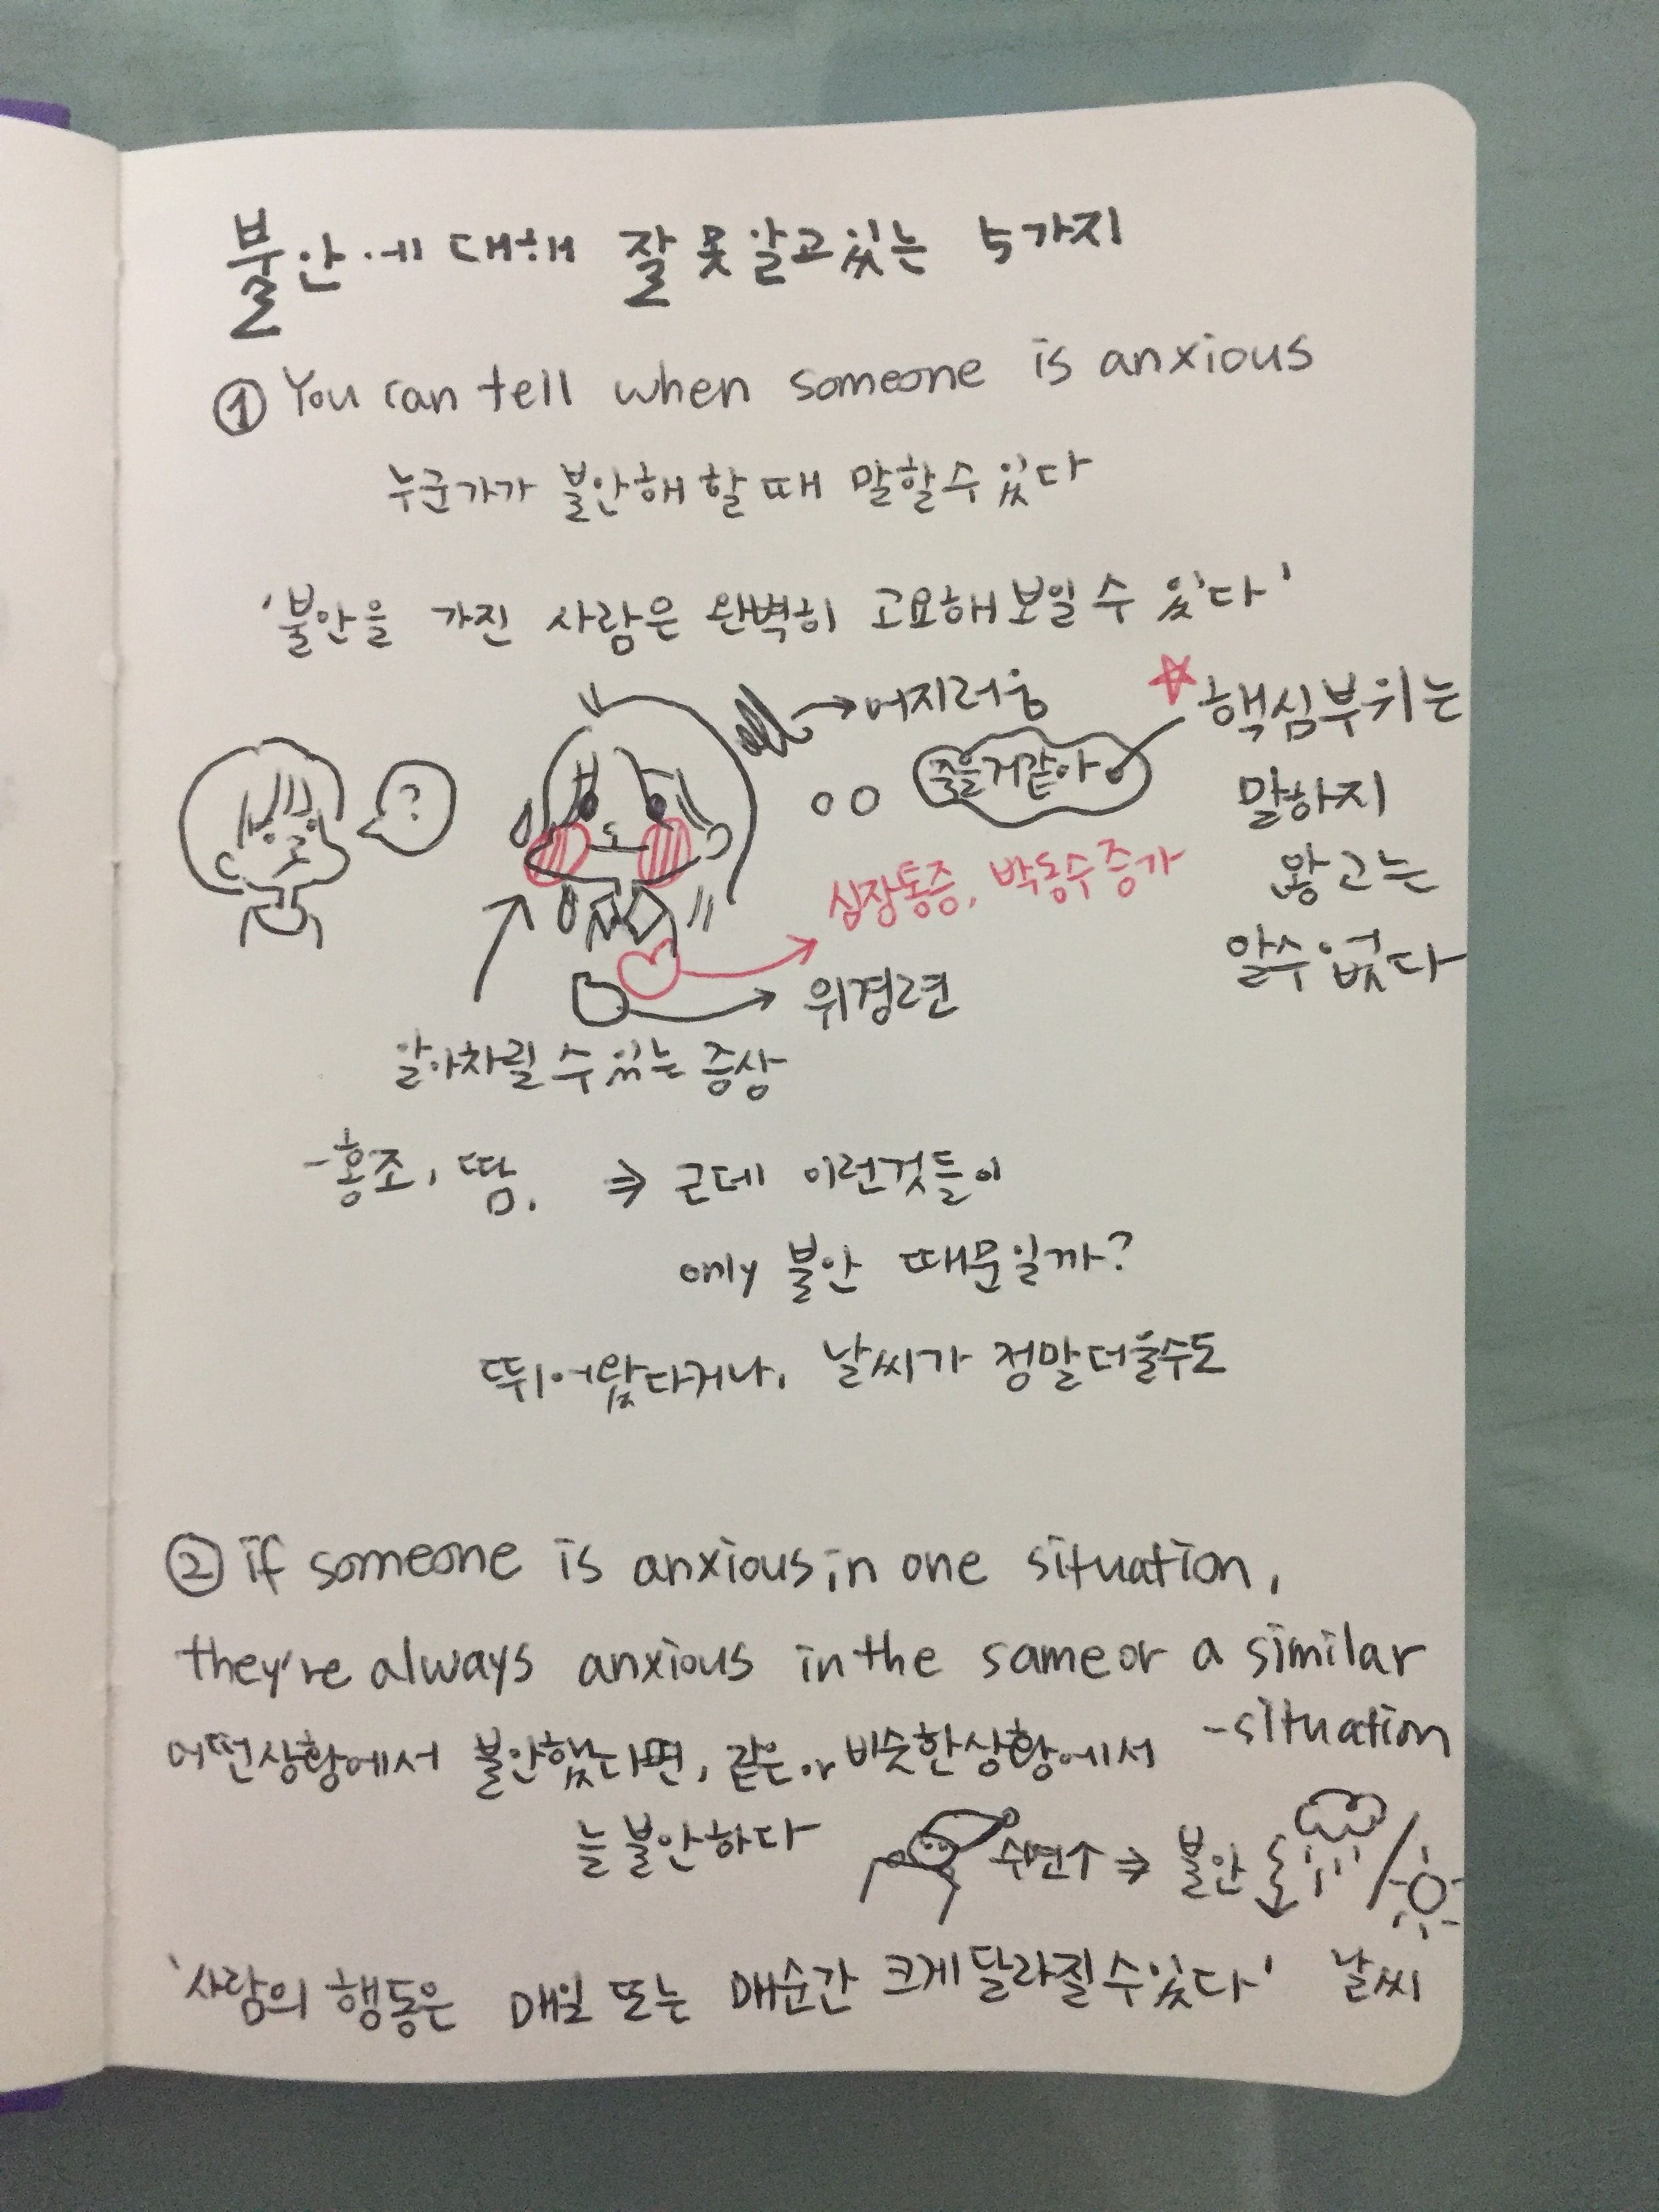 불안에 대해 잘못알고있는 5가지
① You can tell when someone is anxious
누군가가 불안해 할 때 말할수있다
'불안을 가진 사람은 완벽히 고요해보일 수 있다'
?
→어지러움
죽을거같아
☆핵심부위는
말하지
않고는
알수없다
심장통증, 박동수증가
위경련
알아차릴 수 있는 증상
-홍조, 땀. ⇒ 근데 이런것들이
only 불안 때문일까?
뛰어왔다거나, 날씨가 정말더울수도
② if someone is anxious in one situation,
they're always anxious in the same or a similar
-situation
어떤상황에서 불안했다면, 같은or비슷한상황에서
늘 불안하다
수면↑ ⇒ 불안
'사람의 행동은 매일 또는 매순간 크게달라질수있다'
날씨